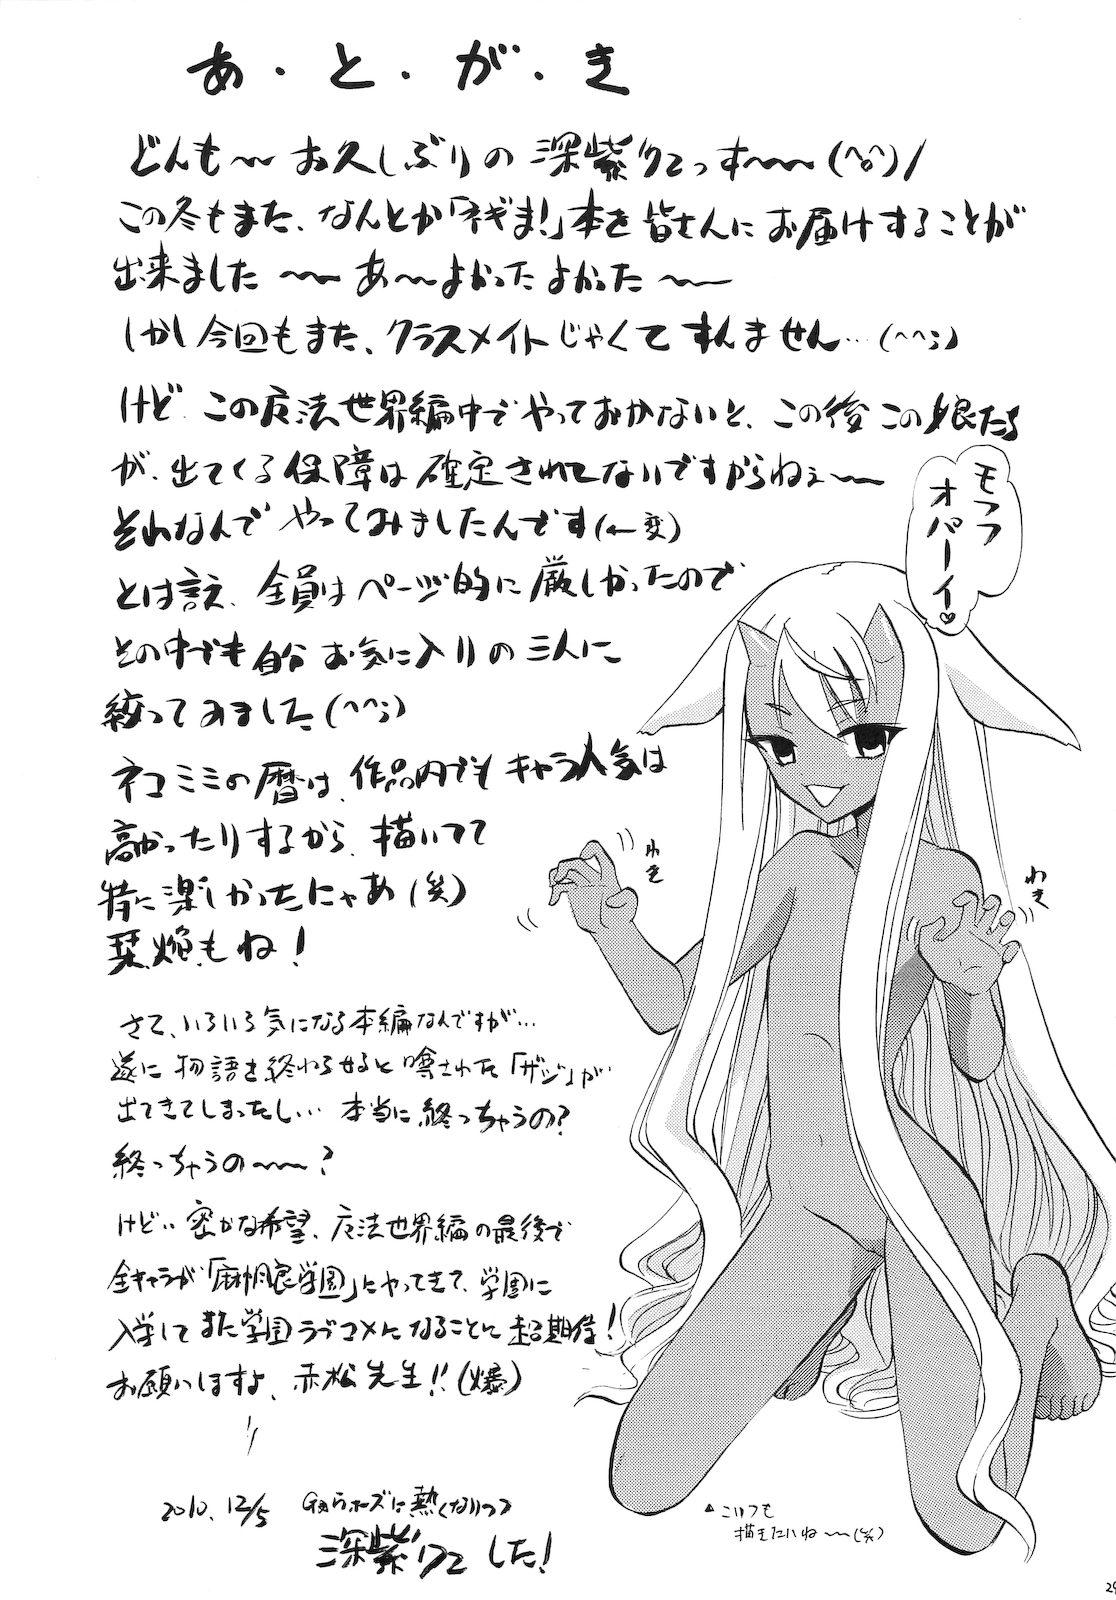 あ・と・が・き
どんも〜〜お久しぶりの深紫クエっす〜〜〜(^o^)/
この冬もまた、なんとか「ネギま!」本を皆さんにお届けすることが
出来ました〜〜〜あ〜〜よかったよかった〜〜
しかし今回もまた、クラスメイトじゃくてすんません…(^^;)
けど、この魔法世界編中でやっておかないと、この後この娘たち
が、出てくる保障は確定されてないですからねぇ〜〜
それなんでやってみましたんです(←変)
とは言え、全員はページ的に厳しかったので
その中でも自分お気に入りの三人に
絞ってみました(^^;)
ネコミミの暦は、作品内でもキャラ人気は
高かったりするから、描いてて
特に楽しかったにゃあ(笑)
栞、焔もね!
さて、いろいろ気になる本編なんですが…
遂に物語を終わらせると噂された「ザジ」が
出てきてしまったし…本当に終っちゃうの?
終っちゃうの〜〜〜?
けど…密かな希望、魔法世界編の最後で
全キャラが「麻帆良学園」にやってきて、学園に
入学してまた学園ラブコメになることに超期待!
お願いしますよ、赤松先生!!(爆)
2010.12/5
に熱くなりつつ
深紫クエした!
モフフ
オパーイ♡
わき
わき
▲こいつも
描きたいね〜〜(笑)
29